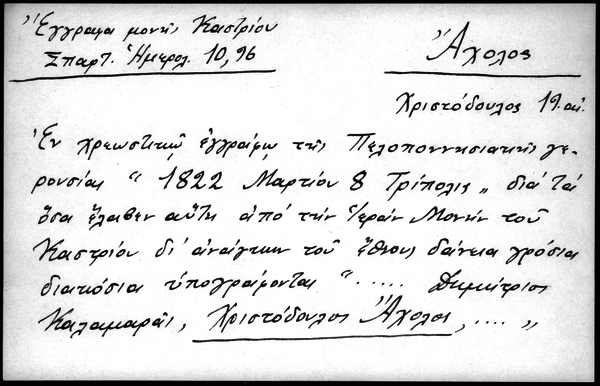 Ἔγγραφα μονῆς Καστρίου
Σπαρτ. Ἡμερολ. 10,96
Ἄχολος
Χριστόδουλος 19.αἰ.
Ἐν χρεωστικῷ ἐγγράφῳ τῆς Πελοποννησιακῆς γε-
ρουσίας " 1822 Μαρτίου 8 Τρίπολις „ διά τά
ὅσα ἔλαβεν αὕτη ἀπό τήν Ἱεράν Μονήν τοῦ
Καστρίου δι' ἀνάγκην τοῦ ἔθνους δάνεια γρόσια
διακόσια ὑπογράφονται " ..... Δημήτριος
Καλαμαρᾶς, Χριστόδουλος Ἄχολος, .... „